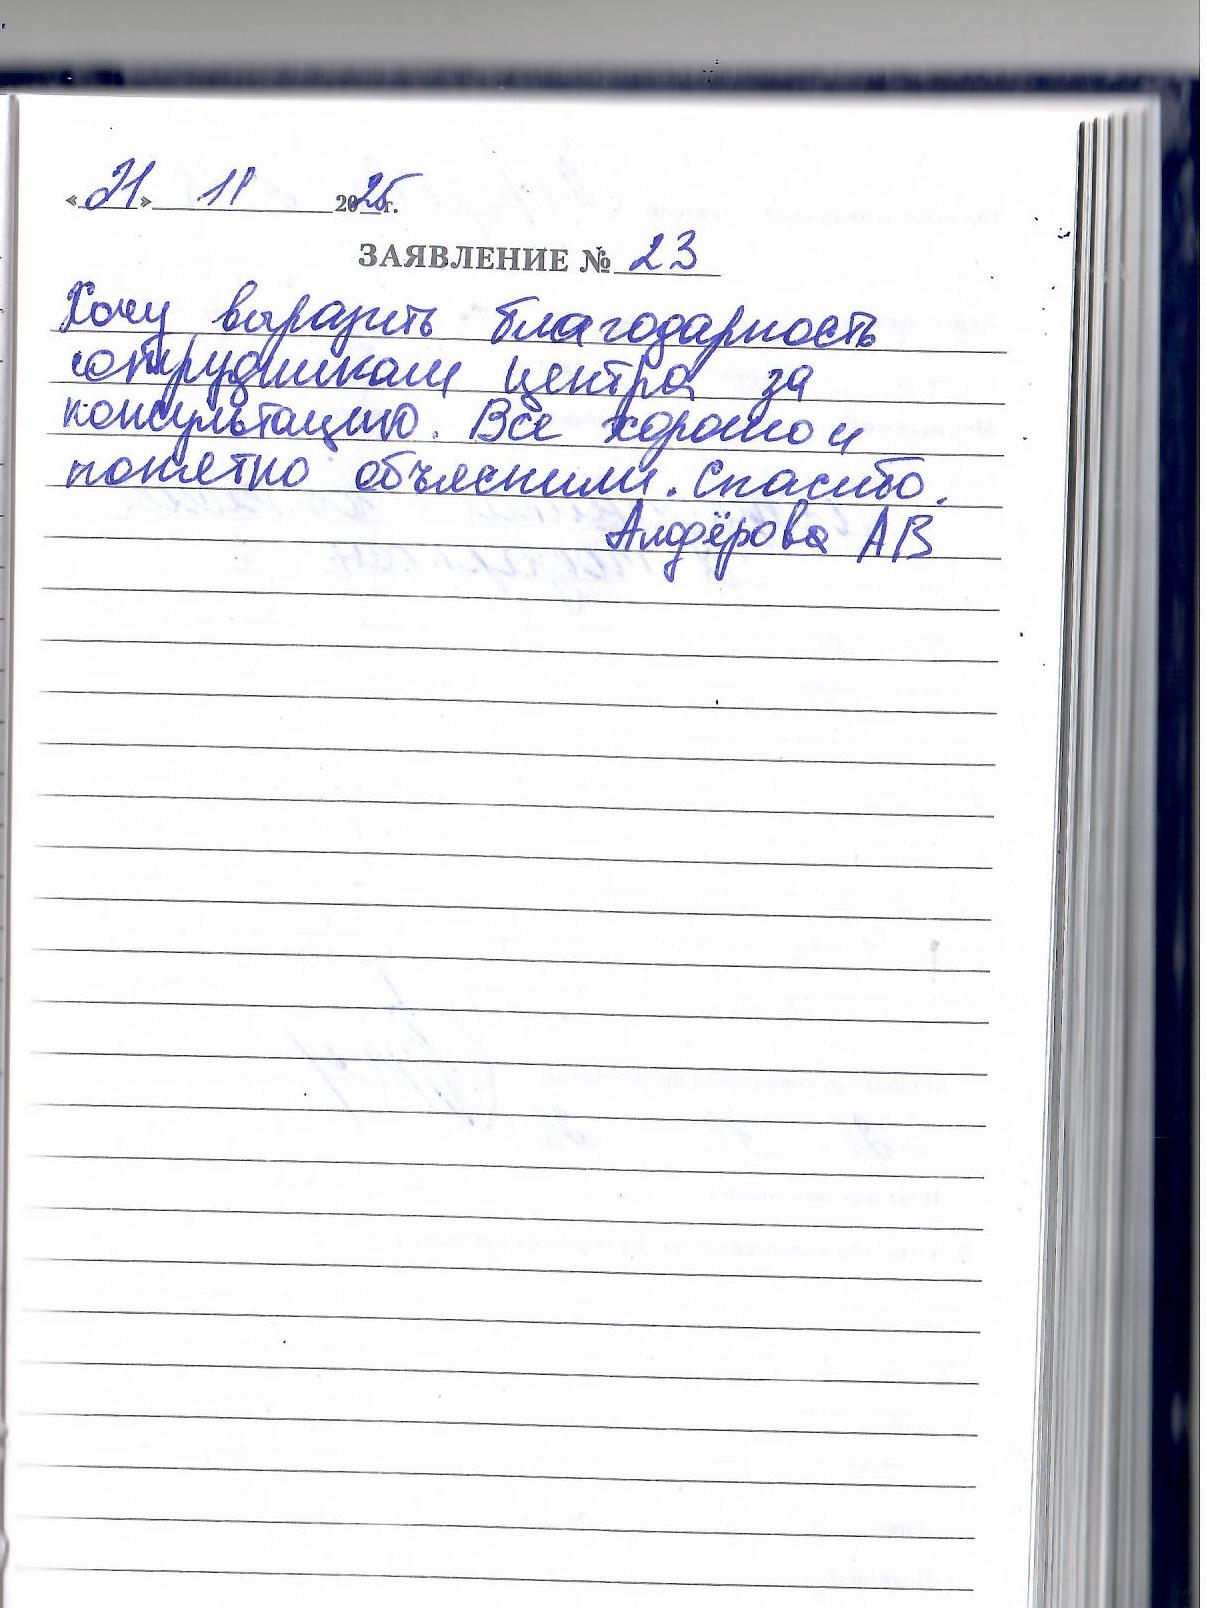 «21» 11 2025г.
ЗАЯВЛЕНИЕ № 23
Хочу выразить благодарность
сотрудникам центра за
консультацию. Все хорошо и
понятно объяснили. Спасибо.
Алфёрова АВ